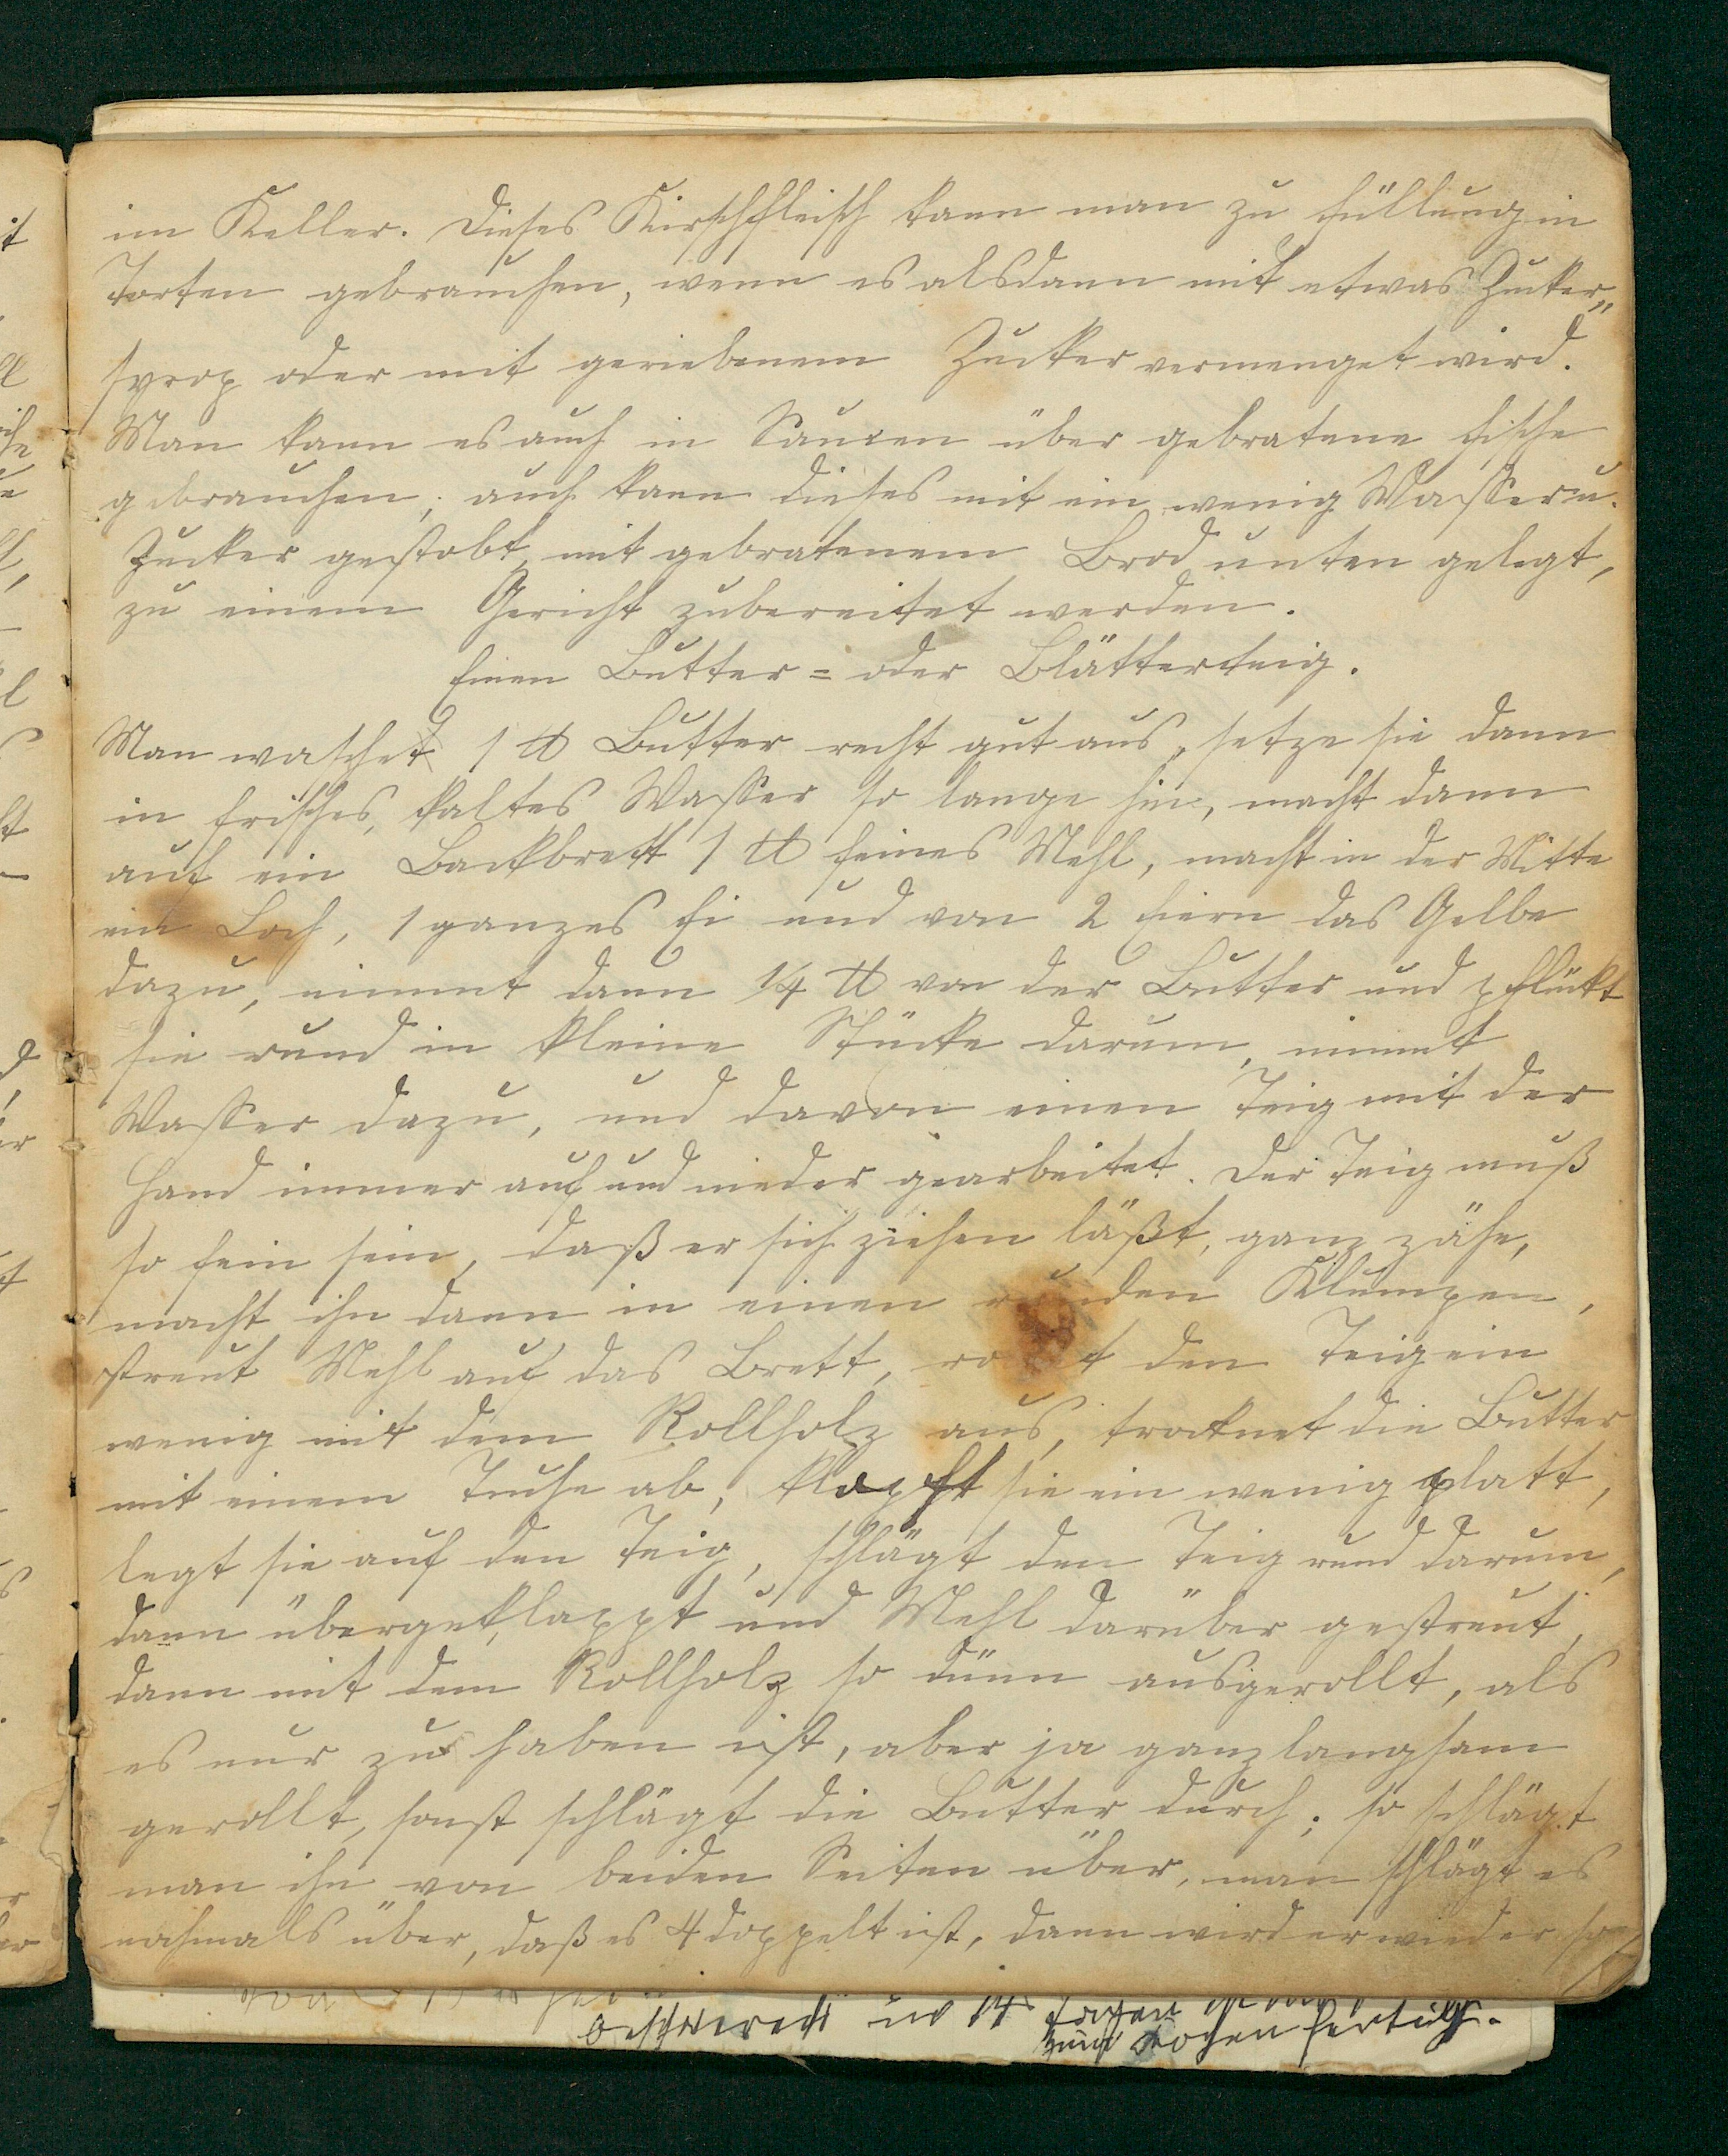 im Keller. Dieses Kirschfleisch kann man zu Füllung in
Torten gebrauchen, wenn es alsdann mit etwas Zucker„
syrop oder mit geriebenem Zucker vermenget wird.
Man kann es auch in Saucen über gebratene Fische
gebrauchen, auch kann dieses mit ein wenig Wasser u.
Zucker gestobt, mit gebratenem Brod unten gelegt,
zu einem Gericht zubereitet werden.
Einen Butter = oder Blätterteig.
Man waschet 1 ℔ Butter recht gut aus, setze sie dann
in frisches, kaltes Wasser so lange hin, macht dann
auf ein Backbrett 1 ℔ feines Mehl, macht in der Mitte
ein Loch, 1 ganzes Ei und von 2 Eiern das Gelbe
dazu, nimmt dann 1/4 ℔ von der Butter und pflückt
sie rund in kleine Stücke darum, nimmt
Wasser dazu, und davon einen Teig mit der
Hand immer auf und nieder gearbeitet. Der Teig muß
so fein sein, daß er sich ziehen läßt, ganz zähe,
macht ihn dann in einen runden Klumpen,
streut Mehl auf das Brett, rollt den Teig ein
wenig mit dem Rollholz aus, trocknet die Butter
mit einem Tuche ab, klopft sie ein wenig platt,
legt sie auf den Teig, schlägt den Teig rund darum,
dann übergeklappt und Mehl darüber gestreut,
dann mit dem Rollholz so dünn ausgerollt, als
es nur zu haben ist, aber ja ganz langsam
gerollt, sonst schlägt die Butter durch; so schlägt
man ihn von beiden Seiten über, man schlägt es
nochmals über, daß es 4 doppelt ist, dann wird er wieder so
in 14 Tagen
zum kochen fertig.